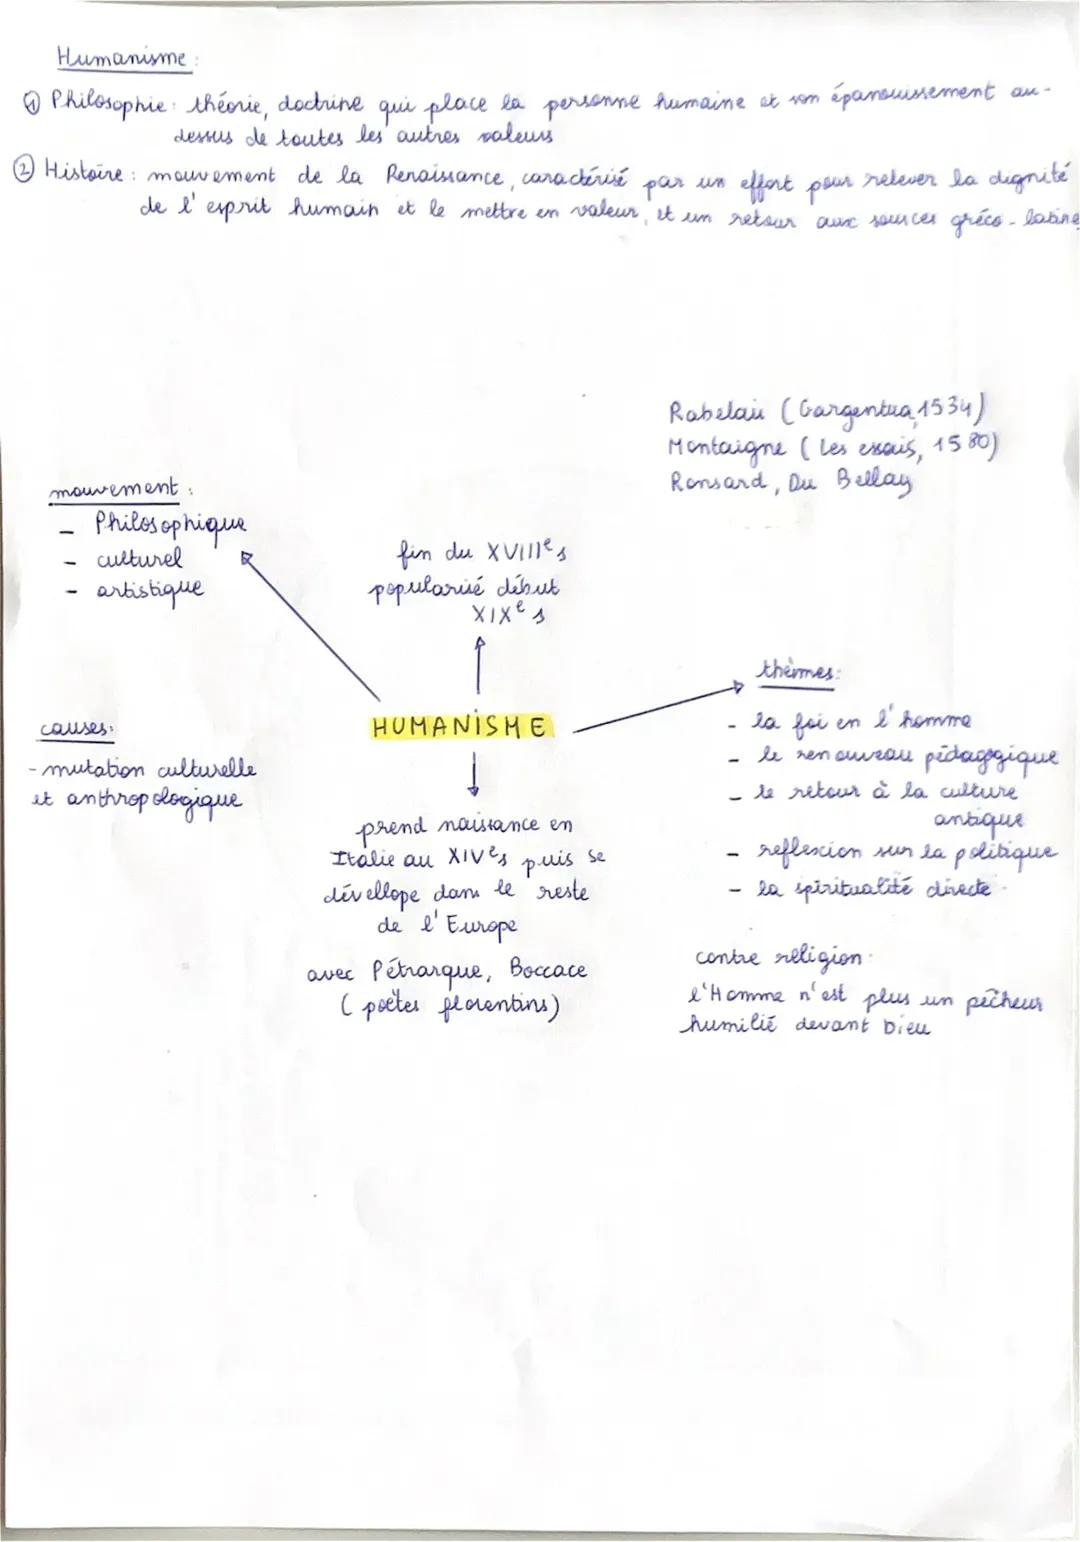 Humanisme :
① Philosophie : théorie, doctrine qui place la personne humaine et son épanouissement au-
dessus de toutes les autres valeurs
② Histoire : mouvement de la Renaissance, caractérisé par un effort pour relever la dignité
de l'esprit humain et le mettre en valeur, et un retour aux sources gréco-latine
Rabelais (Gargentua, 1534)
Montaigne (Les essais, 1580)
Ronsard, Du Bellay
mouvement :
- Philosophique
- culturel
- artistique
fin du XVIIIe s
popularisé début
XIXe s
thèmes :
- la foi en l'homme
- le renouveau pédagogique
- le retour à la culture
antique
- reflexion sur la politique
- la spiritualité directe
HUMANISME
causes :
- mutation culturelle
et anthropologique
prend naissance en
Italie au XIVe s puis se
dévellope dans le reste
de l'Europe
avec Pétrarque, Boccace
(poètes florentins)
contre religion :
l'Homme n'est plus un pêcheur
humilié devant Dieu